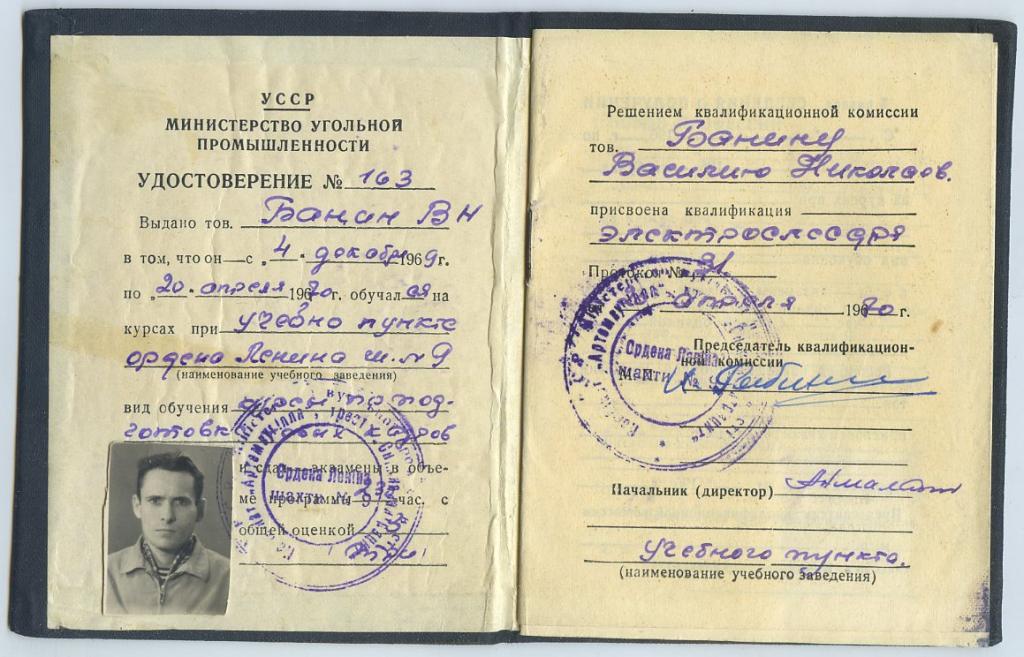 УССР
МИНИСТЕРСТВО УГОЛЬНОЙ
ПРОМЫШЛЕННОСТИ
УДОСТОВЕРЕНИЕ № 163
Выдано тов. Банин ВН
в том, что он — с „4" декабря 1969 г.
по „20" апреля 1970 г. обучался на
курсах при учебно пункте
ордена Ленина ш. № 9
(наименование учебного заведения)
вид обучения курсы по под-
готовк новых кадров
и сдал экзамены в объе-
ме программы час. с
общей оценкой
Ордена Леніна
шахти №
Решением квалификационной комиссии
тов. Банину
Василию Николаев.
присвоена квалификация
электрослесаря
Протокол № 21
апреля 1970 г.
Председатель квалификацион-
ной комиссии
М. П.
Ордена Леніна
шахти № 9
"Артемвугілля"
Начальник (директор)
учебного пункта.
(наименование учебного заведения)